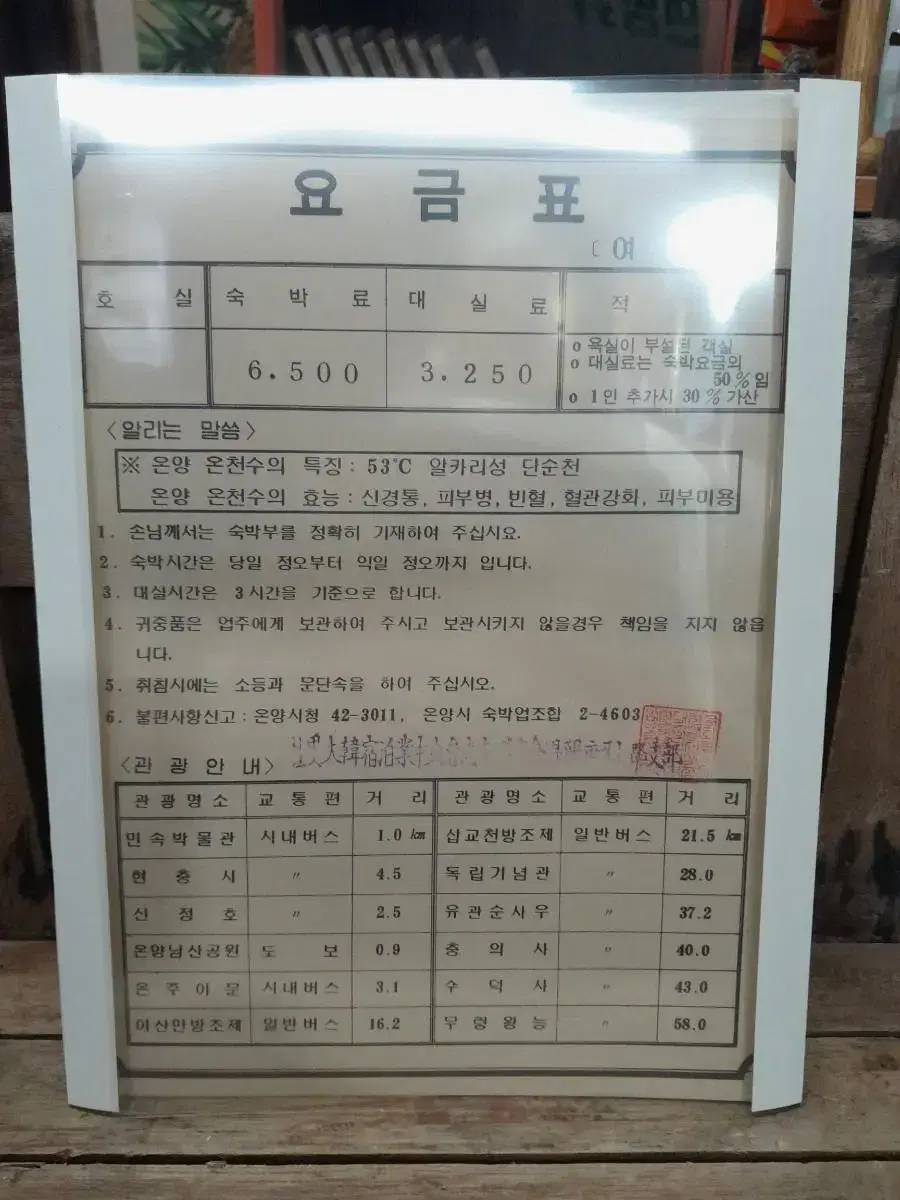 요 금 표
( 여
호 실 숙 박 료 대 실 료 적
6.500 3.250
o 욕실이 부설된 객실
o 대실료는 숙박요금의
50%임
o 1인 추가시 30%가산
<알리는 말씀>
※ 온양 온천수의 특징: 53℃ 알카리성 단순천
온양 온천수의 효능: 신경통, 피부병, 빈혈, 혈관강화, 피부미용
1. 손님께서는 숙박부를 정확히 기재하여 주십시요.
2. 숙박시간은 당일 정오부터 익일 정오까지 입니다.
3. 대실시간은 3시간을 기준으로 합니다.
4. 귀중품은 업주에게 보관하여 주시고 보관시키지 않을경우 책임을 지지 않읍
니다.
5. 취침시에는 소등과 문단속을 하여 주십시오.
6. 불편사항신고: 온양시청 42-3011, 온양시 숙박업조합 2-4603
大韓宿泊業
<관 광 안 내>
관광명소 교통편 거 리 관광명소 교통편 거 리
민속박물관 시내버스 1.0㎞ 삽교천방조제 일반버스 21.5㎞
현 충 시 〃 4.5 독립기념관 〃 28.0
신 정 호 〃 2.5 유관순사우 〃 37.2
온양남산공원 도 보 0.9 충 의 사 〃 40.0
온 주 아 문 시내버스 3.1 수 덕 사 〃 43.0
아산만방조제 일반버스 16.2 무 령 왕 능 〃 58.0